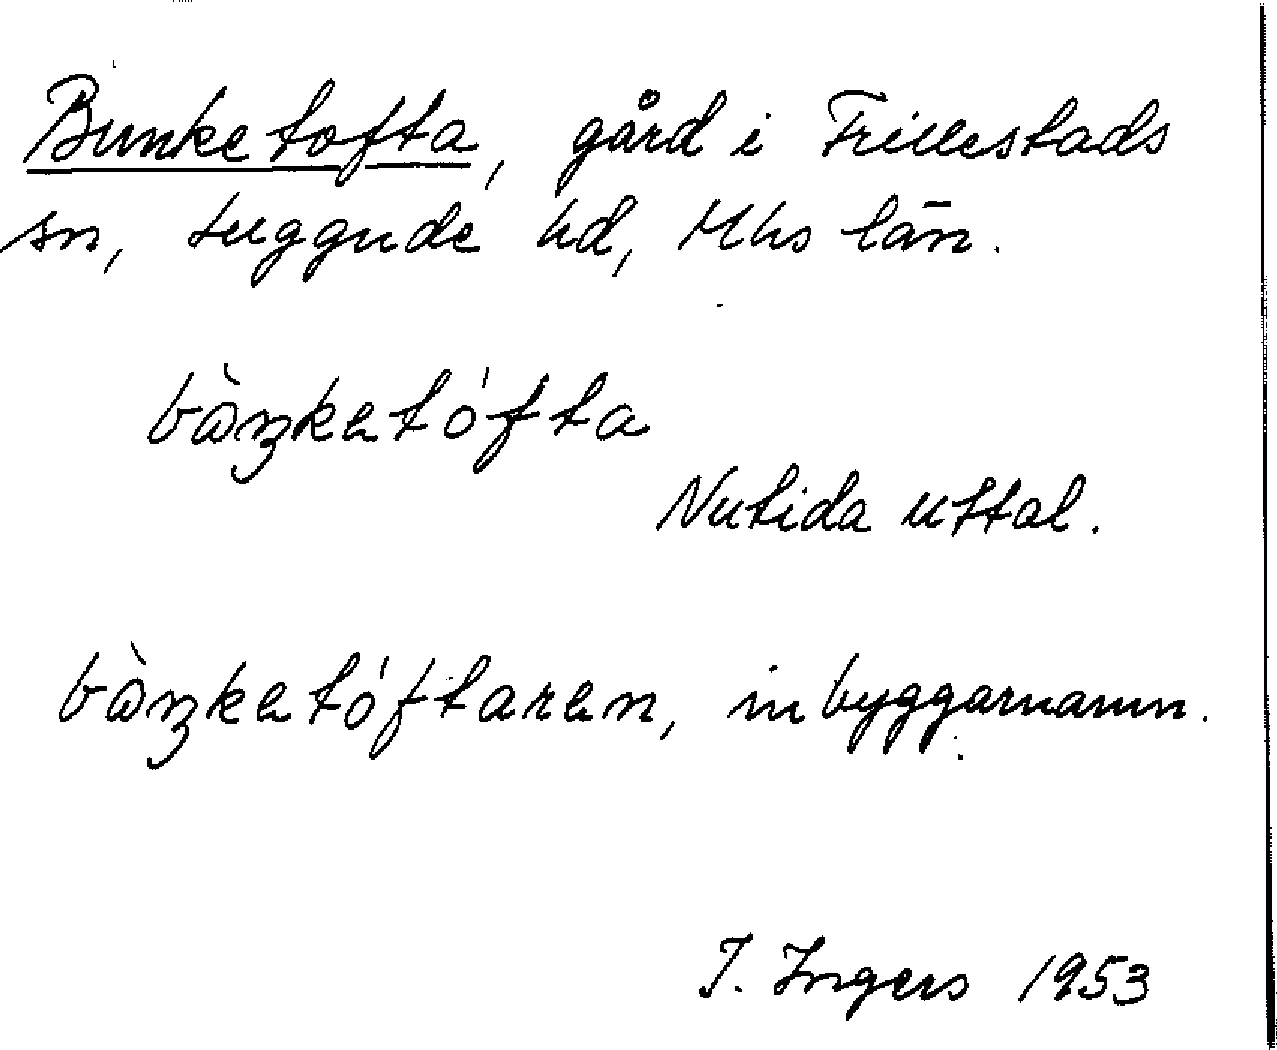 Bunketofta, gård i Frillestads
sn, Luggude hd, Mhs län.
bàŋketófta
Nutida uttal.
bàŋketóftaren, inbyggarnamn.
I. Ingers 1953